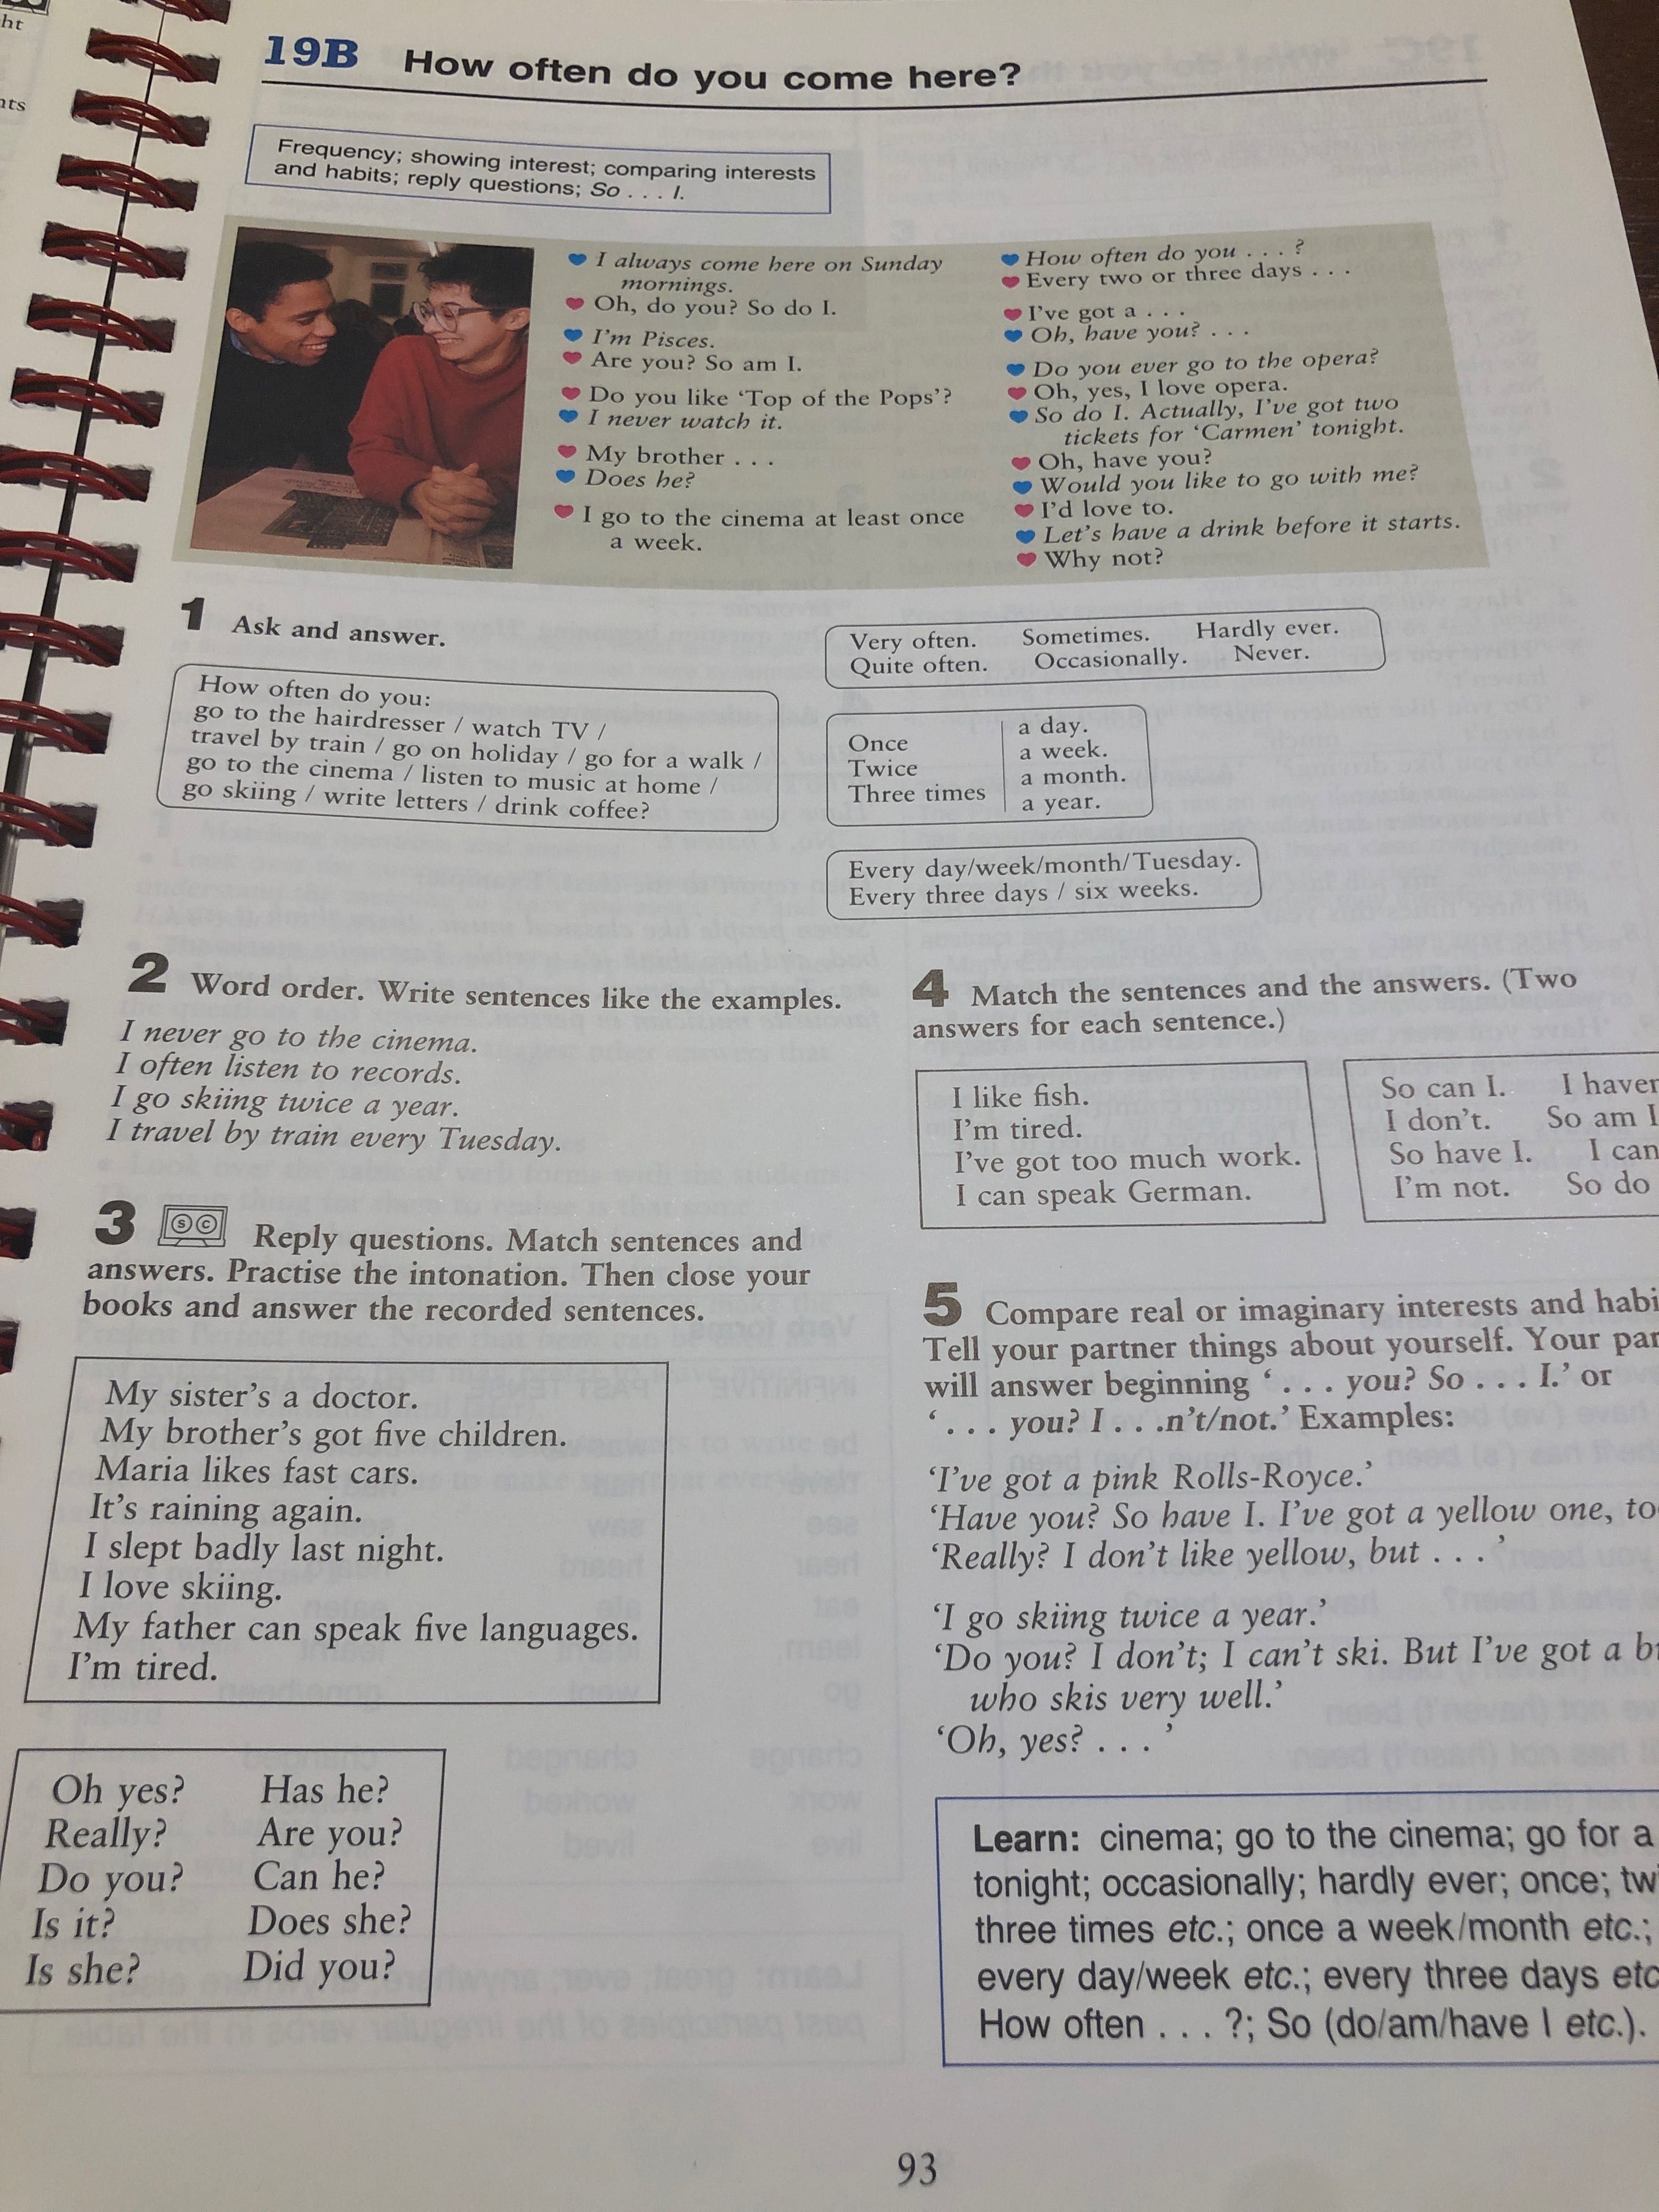 ht
nts
19B How often do you come here?
Frequency; showing interest; comparing interests
and habits; reply questions; So . . . I.
I always come here on Sunday
mornings.
Oh, do you? So do I.
I'm Pisces.
Are you? So am I.
Do you like 'Top of the Pops'?
I never watch it.
My brother . . .
Does he?
I go to the cinema at least once
a week.
How often do you . . . ?
Every two or three days . . .
I've got a . . .
Oh, have you? . . .
Do you ever go to the opera?
Oh, yes, I love opera.
So do I. Actually, I've got two
tickets for 'Carmen' tonight.
Oh, have you?
Would you like to go with me?
I'd love to.
Let's have a drink before it starts.
Why not?
1 Ask and answer.
How often do you:
go to the hairdresser / watch TV /
travel by train / go on holiday / go for a walk /
go to the cinema / listen to music at home /
go skiing / write letters / drink coffee?
Very often. Sometimes. Hardly ever.
Quite often. Occasionally. Never.
Once
Twice
Three times
a day.
a week.
a month.
a year.
Every day/week/month/Tuesday.
Every three days / six weeks.
2 Word order. Write sentences like the examples.
I never go to the cinema.
I often listen to records.
I go skiing twice a year.
I travel by train every Tuesday.
3 Reply questions. Match sentences and
answers. Practise the intonation. Then close your
books and answer the recorded sentences.
My sister's a doctor.
My brother's got five children.
Maria likes fast cars.
It's raining again.
I slept badly last night.
I love skiing.
My father can speak five languages.
I'm tired.
Oh yes? Has he?
Really? Are you?
Do you? Can he?
Is it? Does she?
Is she? Did you?
4 Match the sentences and the answers. (Two
answers for each sentence.)
I like fish.
I'm tired.
I've got too much work.
I can speak German.
So can I. I haven
I don't. So am I
So have I. I can
I'm not. So do
5 Compare real or imaginary interests and habi
Tell your partner things about yourself. Your par
will answer beginning ' . . . you? So . . . I.' or
' . . . you? I . . .n't/not.' Examples:
'I've got a pink Rolls-Royce.'
'Have you? So have I. I've got a yellow one, to
'Really? I don't like yellow, but . . . '
'I go skiing twice a year.'
'Do you? I don't; I can't ski. But I've got a b
who skis very well.'
'Oh, yes? . . . '
Learn: cinema; go to the cinema; go for a
tonight; occasionally; hardly ever; once; tw
three times etc.; once a week/month etc.;
every day/week etc.; every three days etc
How often . . . ?; So (do/am/have I etc.).
93